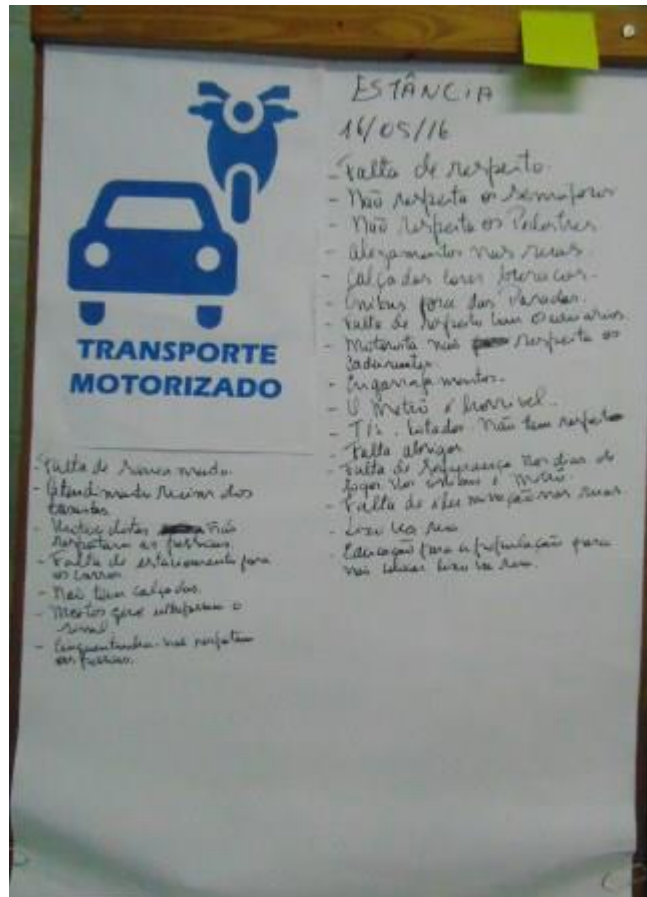 ESTÂNCIA
16/05/16
- Falta de respeito.
- Não respeita os semáforos
- Não respeita os Pedestres
- alagamentos nas ruas.
- Calçadas com buracos.
- Ônibus fora das Paradas.
- Falta de respeito com os usuários.
- Motorista não respeita os
cadeirantes.
- Engarrafamentos.
- O Metrô é horrível.
- T.I. lotados não tem respeito
- Falta abrigos
- Falta de segurança nos dias de
jogos nos ônibus e metrô.
- Falta de iluminação nas ruas.
- Lixo na rua
- Educação para a população para
não colocar lixo na rua.
TRANSPORTE
MOTORIZADO
- Falta de
- dos
- não
respeitam as pessoas
- Falta de estacionamento para
os carros
- Não tem calçadas.
- Motos que ultrapassam o
sinal
- Cinquentinha não respeitam
as pessoas.